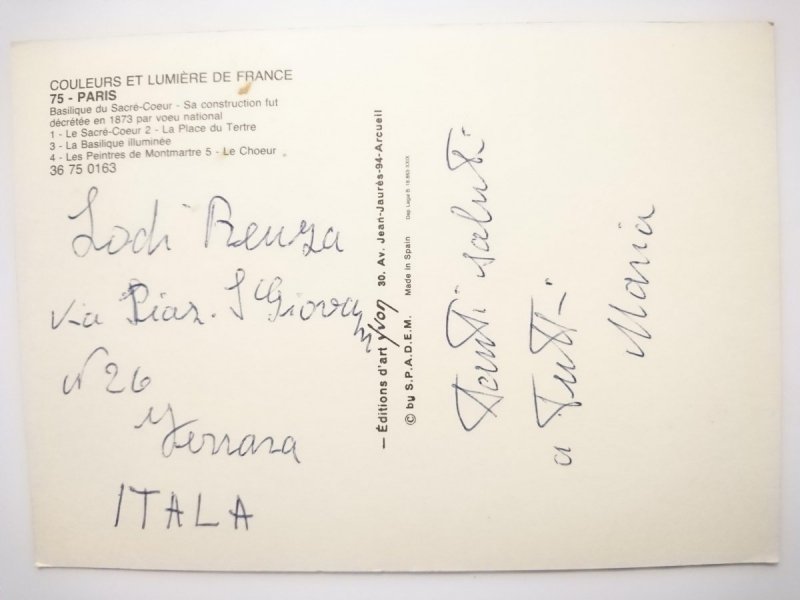 COULEURS ET LUMIÈRE DE FRANCE
75 - PARIS
Basilique du Sacré-Coeur - Sa construction fut
décrétée en 1873 par voeu national
1 - Le Sacré-Coeur 2 - La Place du Tertre
3 - La Basilique illuminée
4 - Les Peintres de Montmartre 5 - Le Choeur
36 75 0163
Lodi Renza
Via Piaz. S Giovann
N 26
Ferrara
ITALA
— Éditions d'art yvon 30. Av. Jean-Jaurès-94-Arcueil
© by S.P.A.D.E.M. Made in Spain Dep. Legal B.
Tanti saluti
a Tutti
Maria